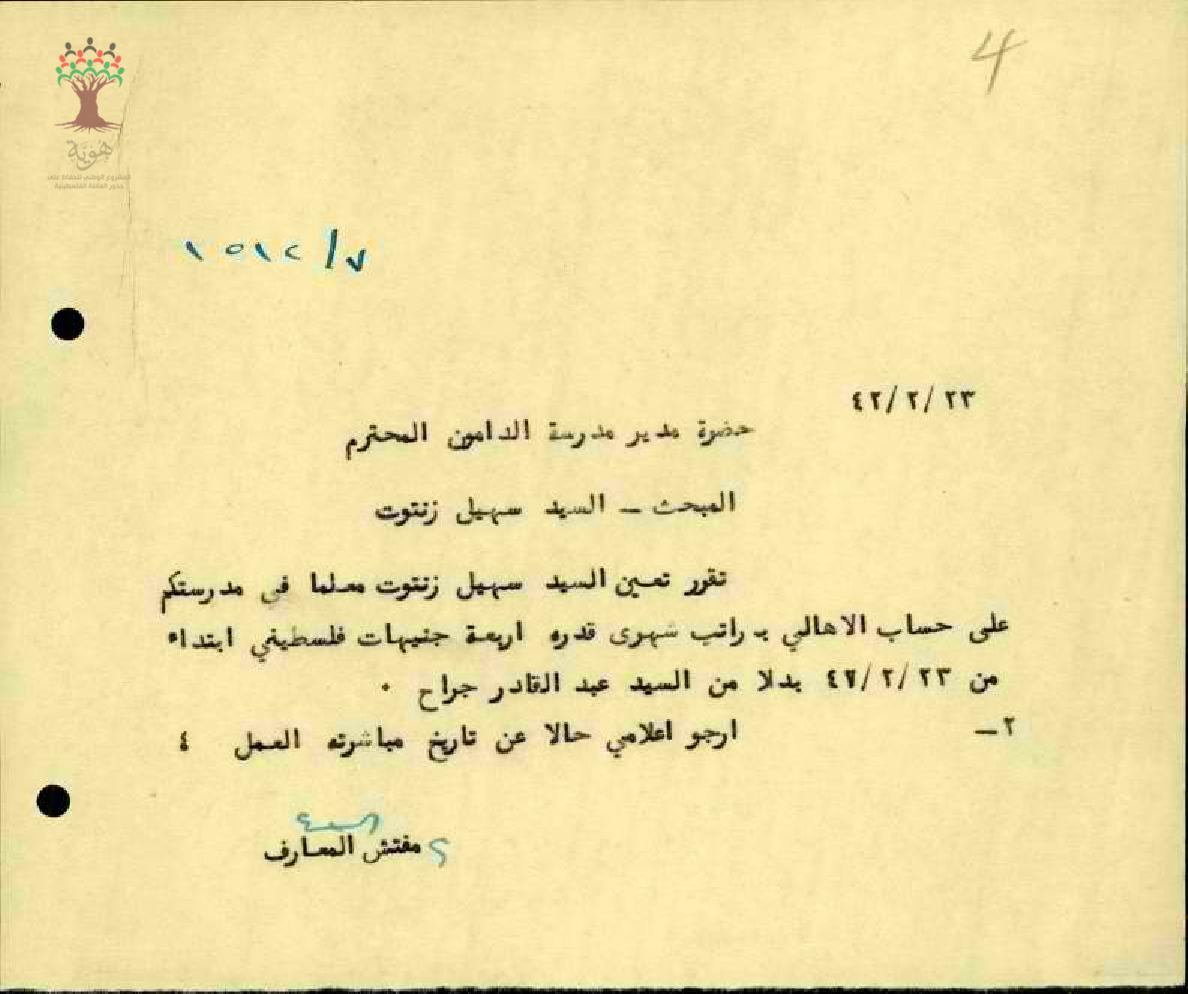 4
هوية
المشروع الوطني للحفاظ على
جذور العائلة الفلسطينية
١٥١٢/٧
٤٢/٢/٢٣
حضرة مدير مدرسة الدامون المحترم
المبحث – السيد سهيل زنتوت
تقرر تعيين السيد سهيل زنتوت معلما في مدرستكم
على حساب الاهالي بـ راتب شهرى قدره اربعة جنيهات فلسطيني ابتداء
من ٤٢/٢/٢٣ بدلا من السيد عبد القادر جراح ٠
٢– ارجو اعلامي حالا عن تاريخ مباشرته العمل ٤
مفتش المعارف